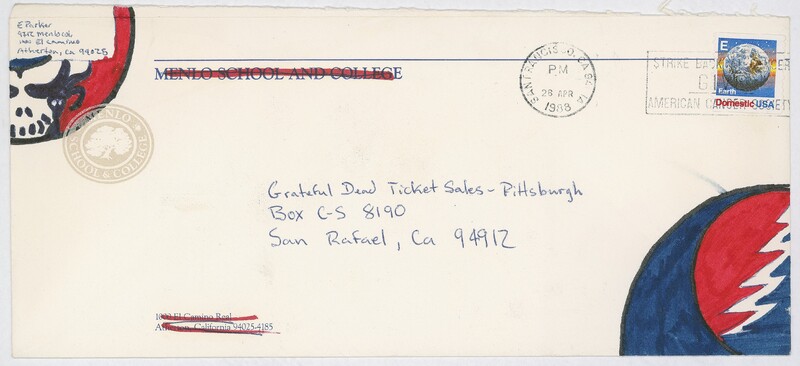 E Parker
9212 Menlocol
1000 El Camino
Atherton, Ca 94025
MENLO SCHOOL AND COLLEGE
MENLO
SCHOOL & COLLEGE
SAN FRANCISCO, CA 941
PM
26 APR
1988
STRIKE BACK
AMERICAN CANCER SOCIETY
E
Earth
Domestic USA
Grateful Dead Ticket Sales - Pittsburgh
Box C-S 8190
San Rafael, Ca 94912
1000 El Camino Real
Atherton, California 94025-4185